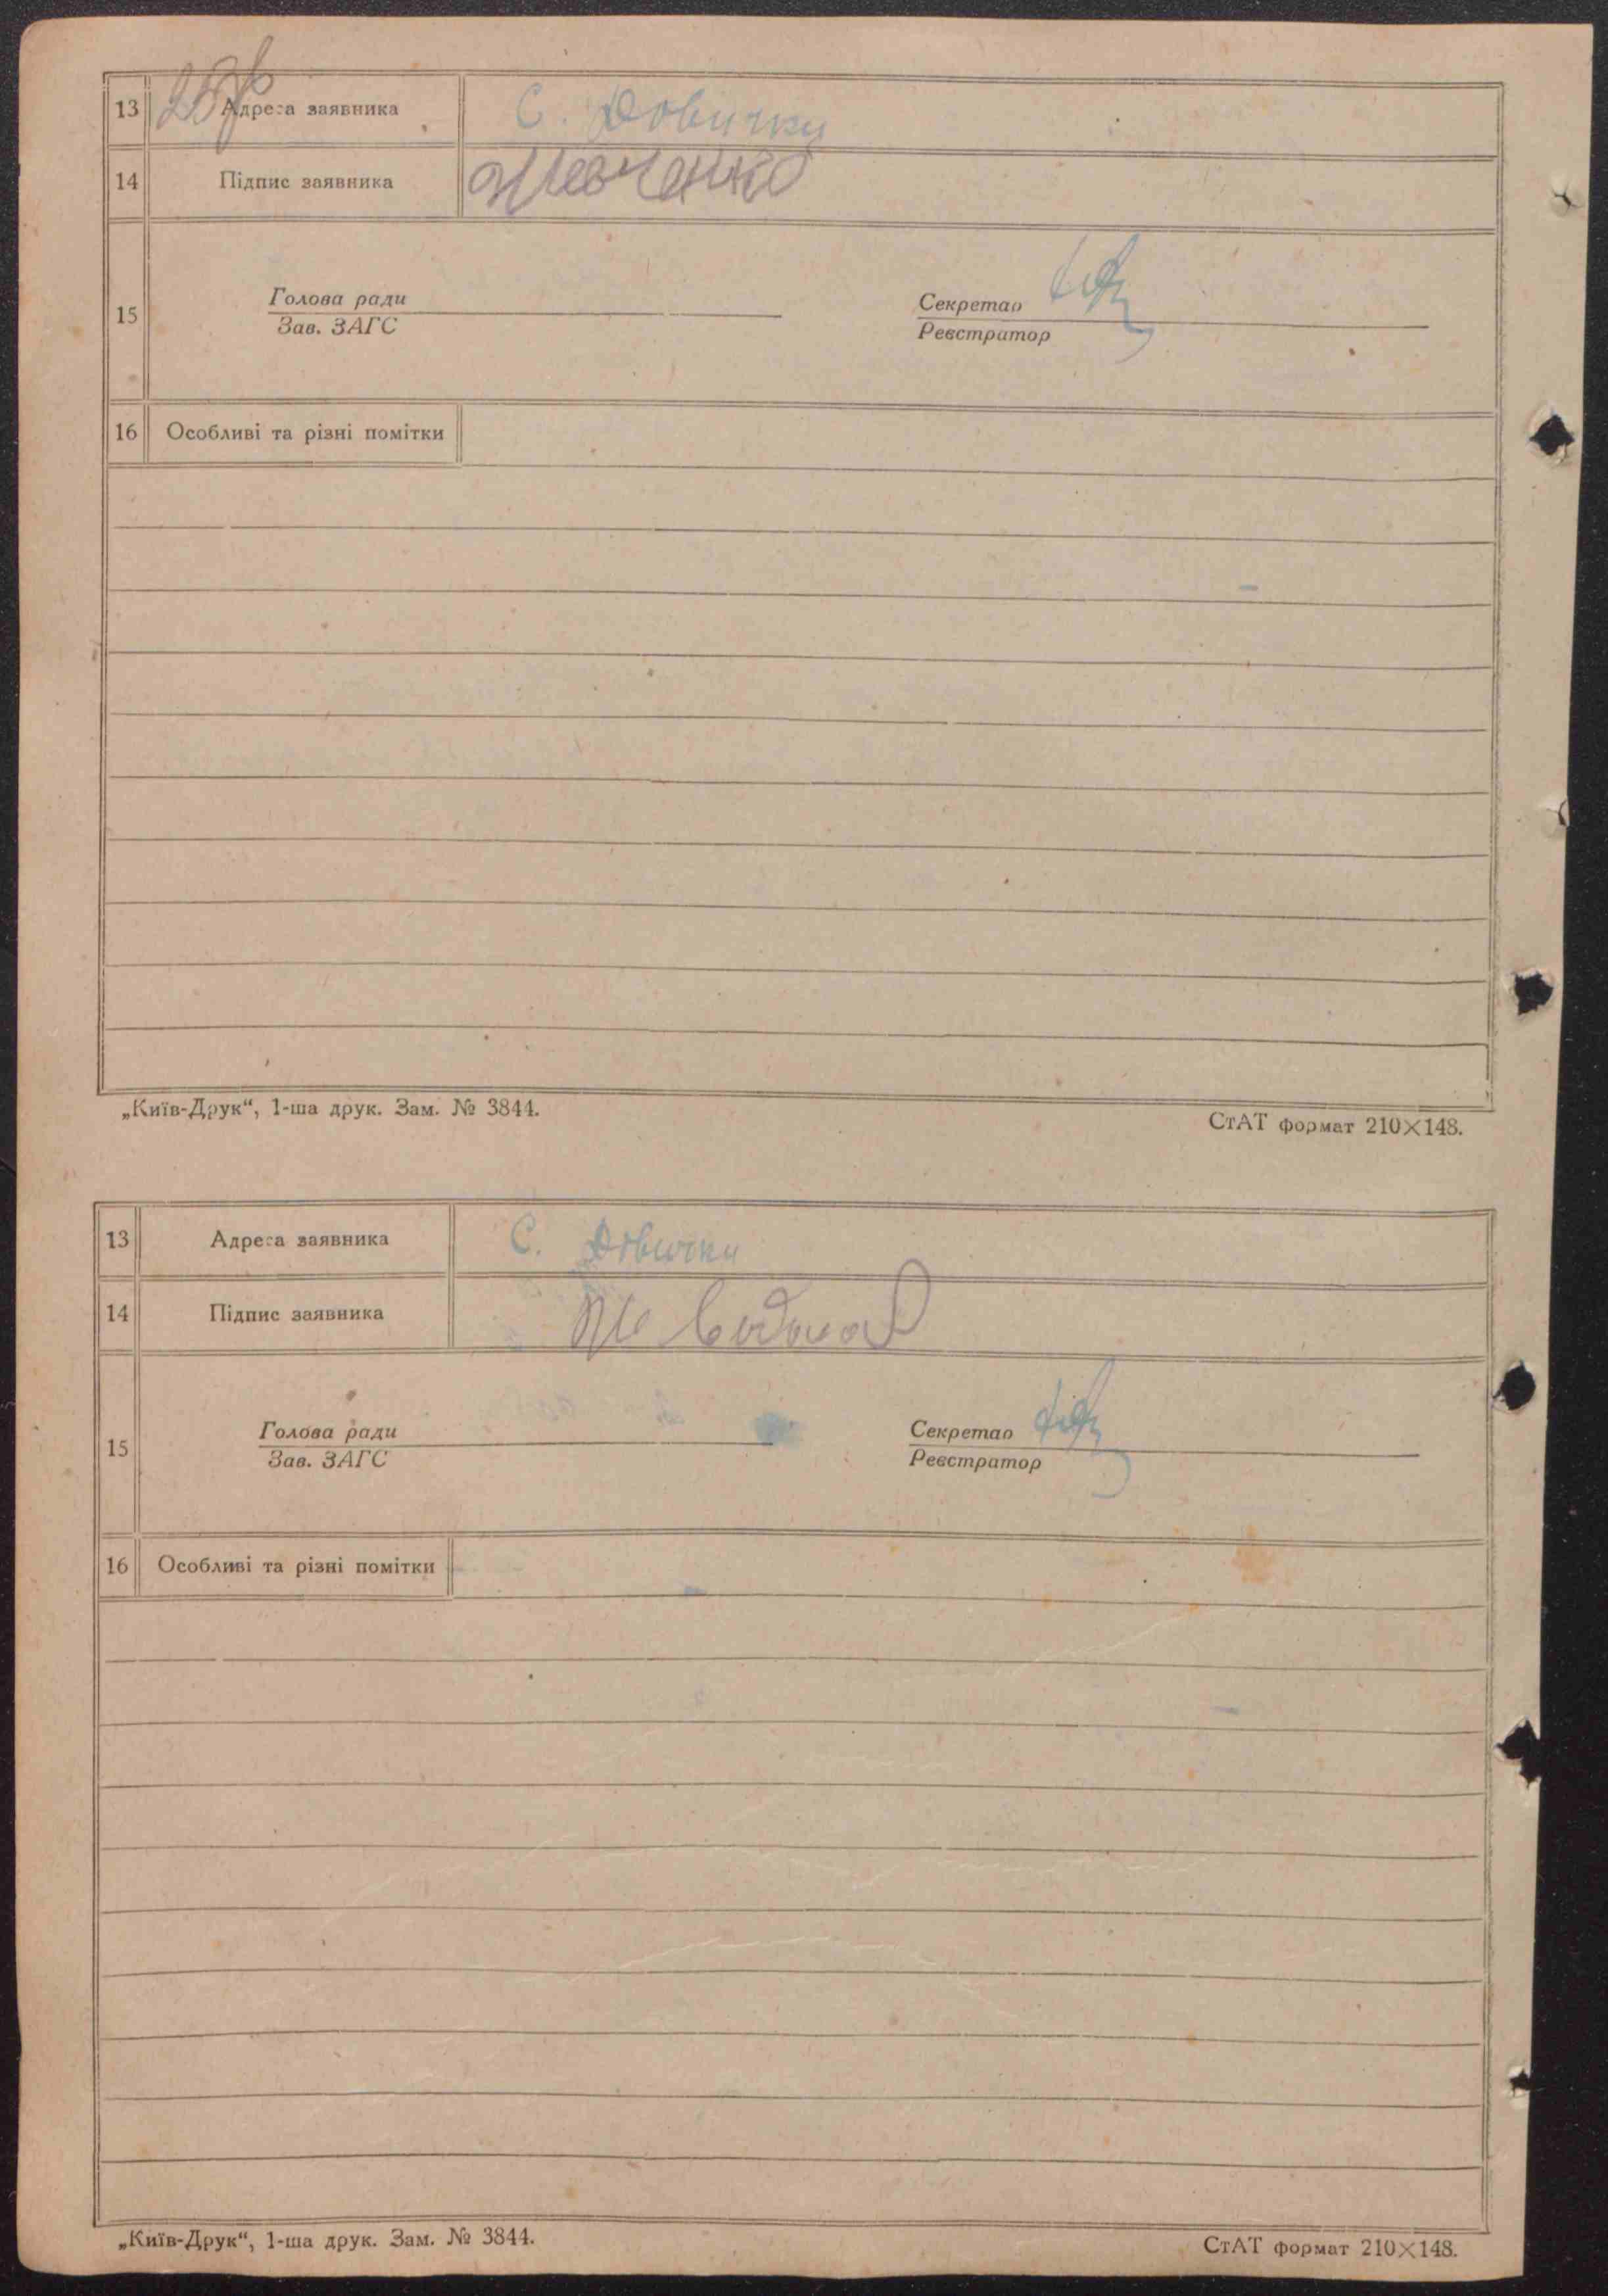 13 Адреса заявника С. Довички
14 Підпис заявника Шевченко
15 Голова ради Секретар
Зав. ЗАГС Реєстратор
16 Особливі та різні помітки
„Київ-Друк“, 1-ша друк. Зам. № 3844. СтАТ формат 210×148.
13 Адреса заявника С. Довички
14 Підпис заявника
15 Голова ради Секретар
Зав. ЗАГС Реєстратор
16 Особливі та різні помітки
„Київ-Друк“, 1-ша друк. Зам. № 3844. СтАТ формат 210×148.